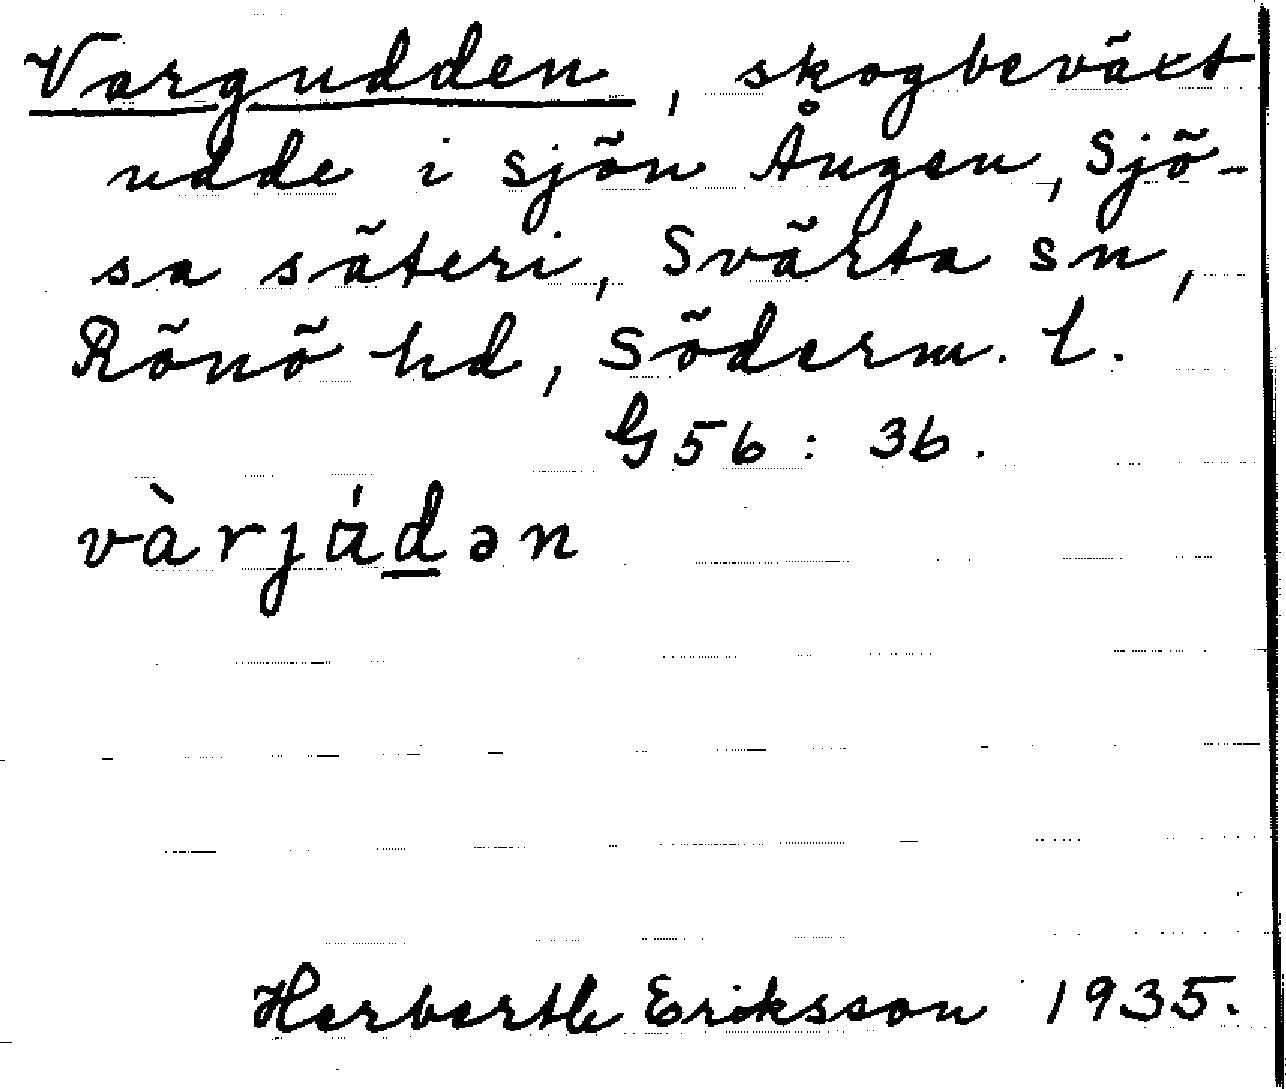 Vargudden, skogbeväxt
udde i sjön Ången, Sjö-
sa säteri, Svärta sn,
Rönö hd, Söderm. l.
G56: 36.
vàrjúdən
Herberth Eriksson 1935.